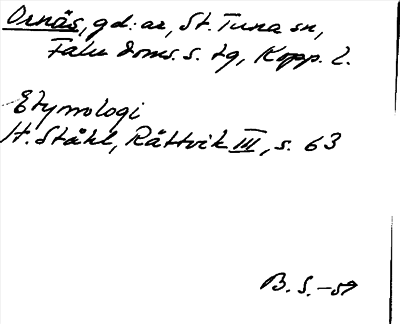 Ornäs, gd:ar, St. Tuna sn,
Falu doms. s. tg, Kopp. l.
Etymologi
H. Ståhl, Rättvik III, s. 63
B. S. -59